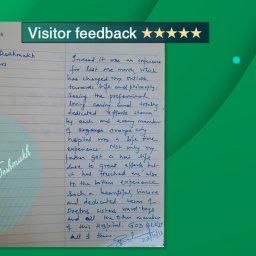 Visitor feedback ★★★★★
Deshmukh
Indeed it was an experience
for last one month, which
has changed my outlook
towards life and philosophy.
Seeing the professional
being caring and totally
dedicated efforts shown
by each and every member
of city
hospital was a life time
experience. Not only my
father got a new life
due to great efforts but
it has touched me also
to the bottom experience
Such a beautiful, sincere
and dedicated team of
Doctors, sisters, ward-boys
and all the other member
of this Hospital. GOD BLESS
all of them
Deshmukh